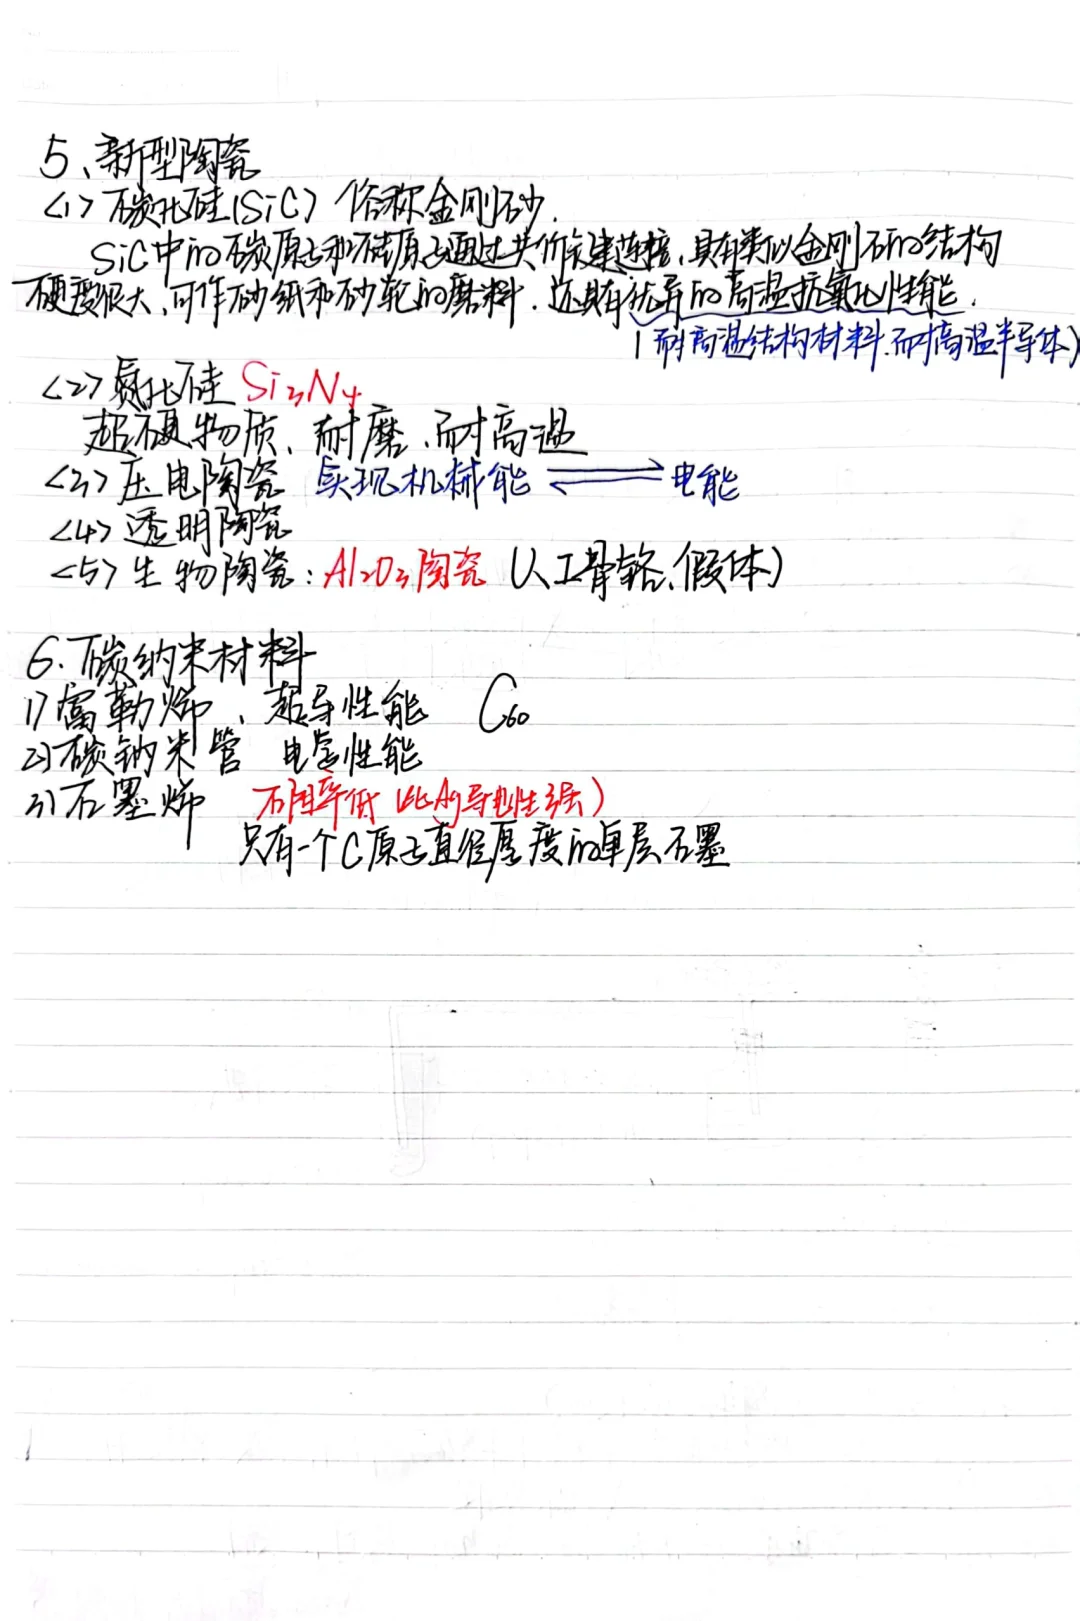 5、新型陶瓷
<1> 碳化硅(SiC) 俗称金刚砂.
SiC中的碳原子和硅原子通过共价键连接,具有类似金刚石的结构
硬度很大,可作砂纸和砂轮的磨料.还具有优异的高温抗氧化性能.
(耐高温结构材料.耐高温半导体)
<2> 氮化硅 Si₃N₄
超硬物质、耐磨、耐高温
<3> 压电陶瓷 实现机械能 ⇌ 电能
<4> 透明陶瓷
<5> 生物陶瓷:Al₂O₃陶瓷 (人工骨骼、假体)
6.碳纳米材料
1)富勒烯、超导性能 C₆₀
2)碳纳米管 电学性能
3)石墨烯 电阻率低(比Ag导电性强)
只有一个C原子直径厚度的单层石墨